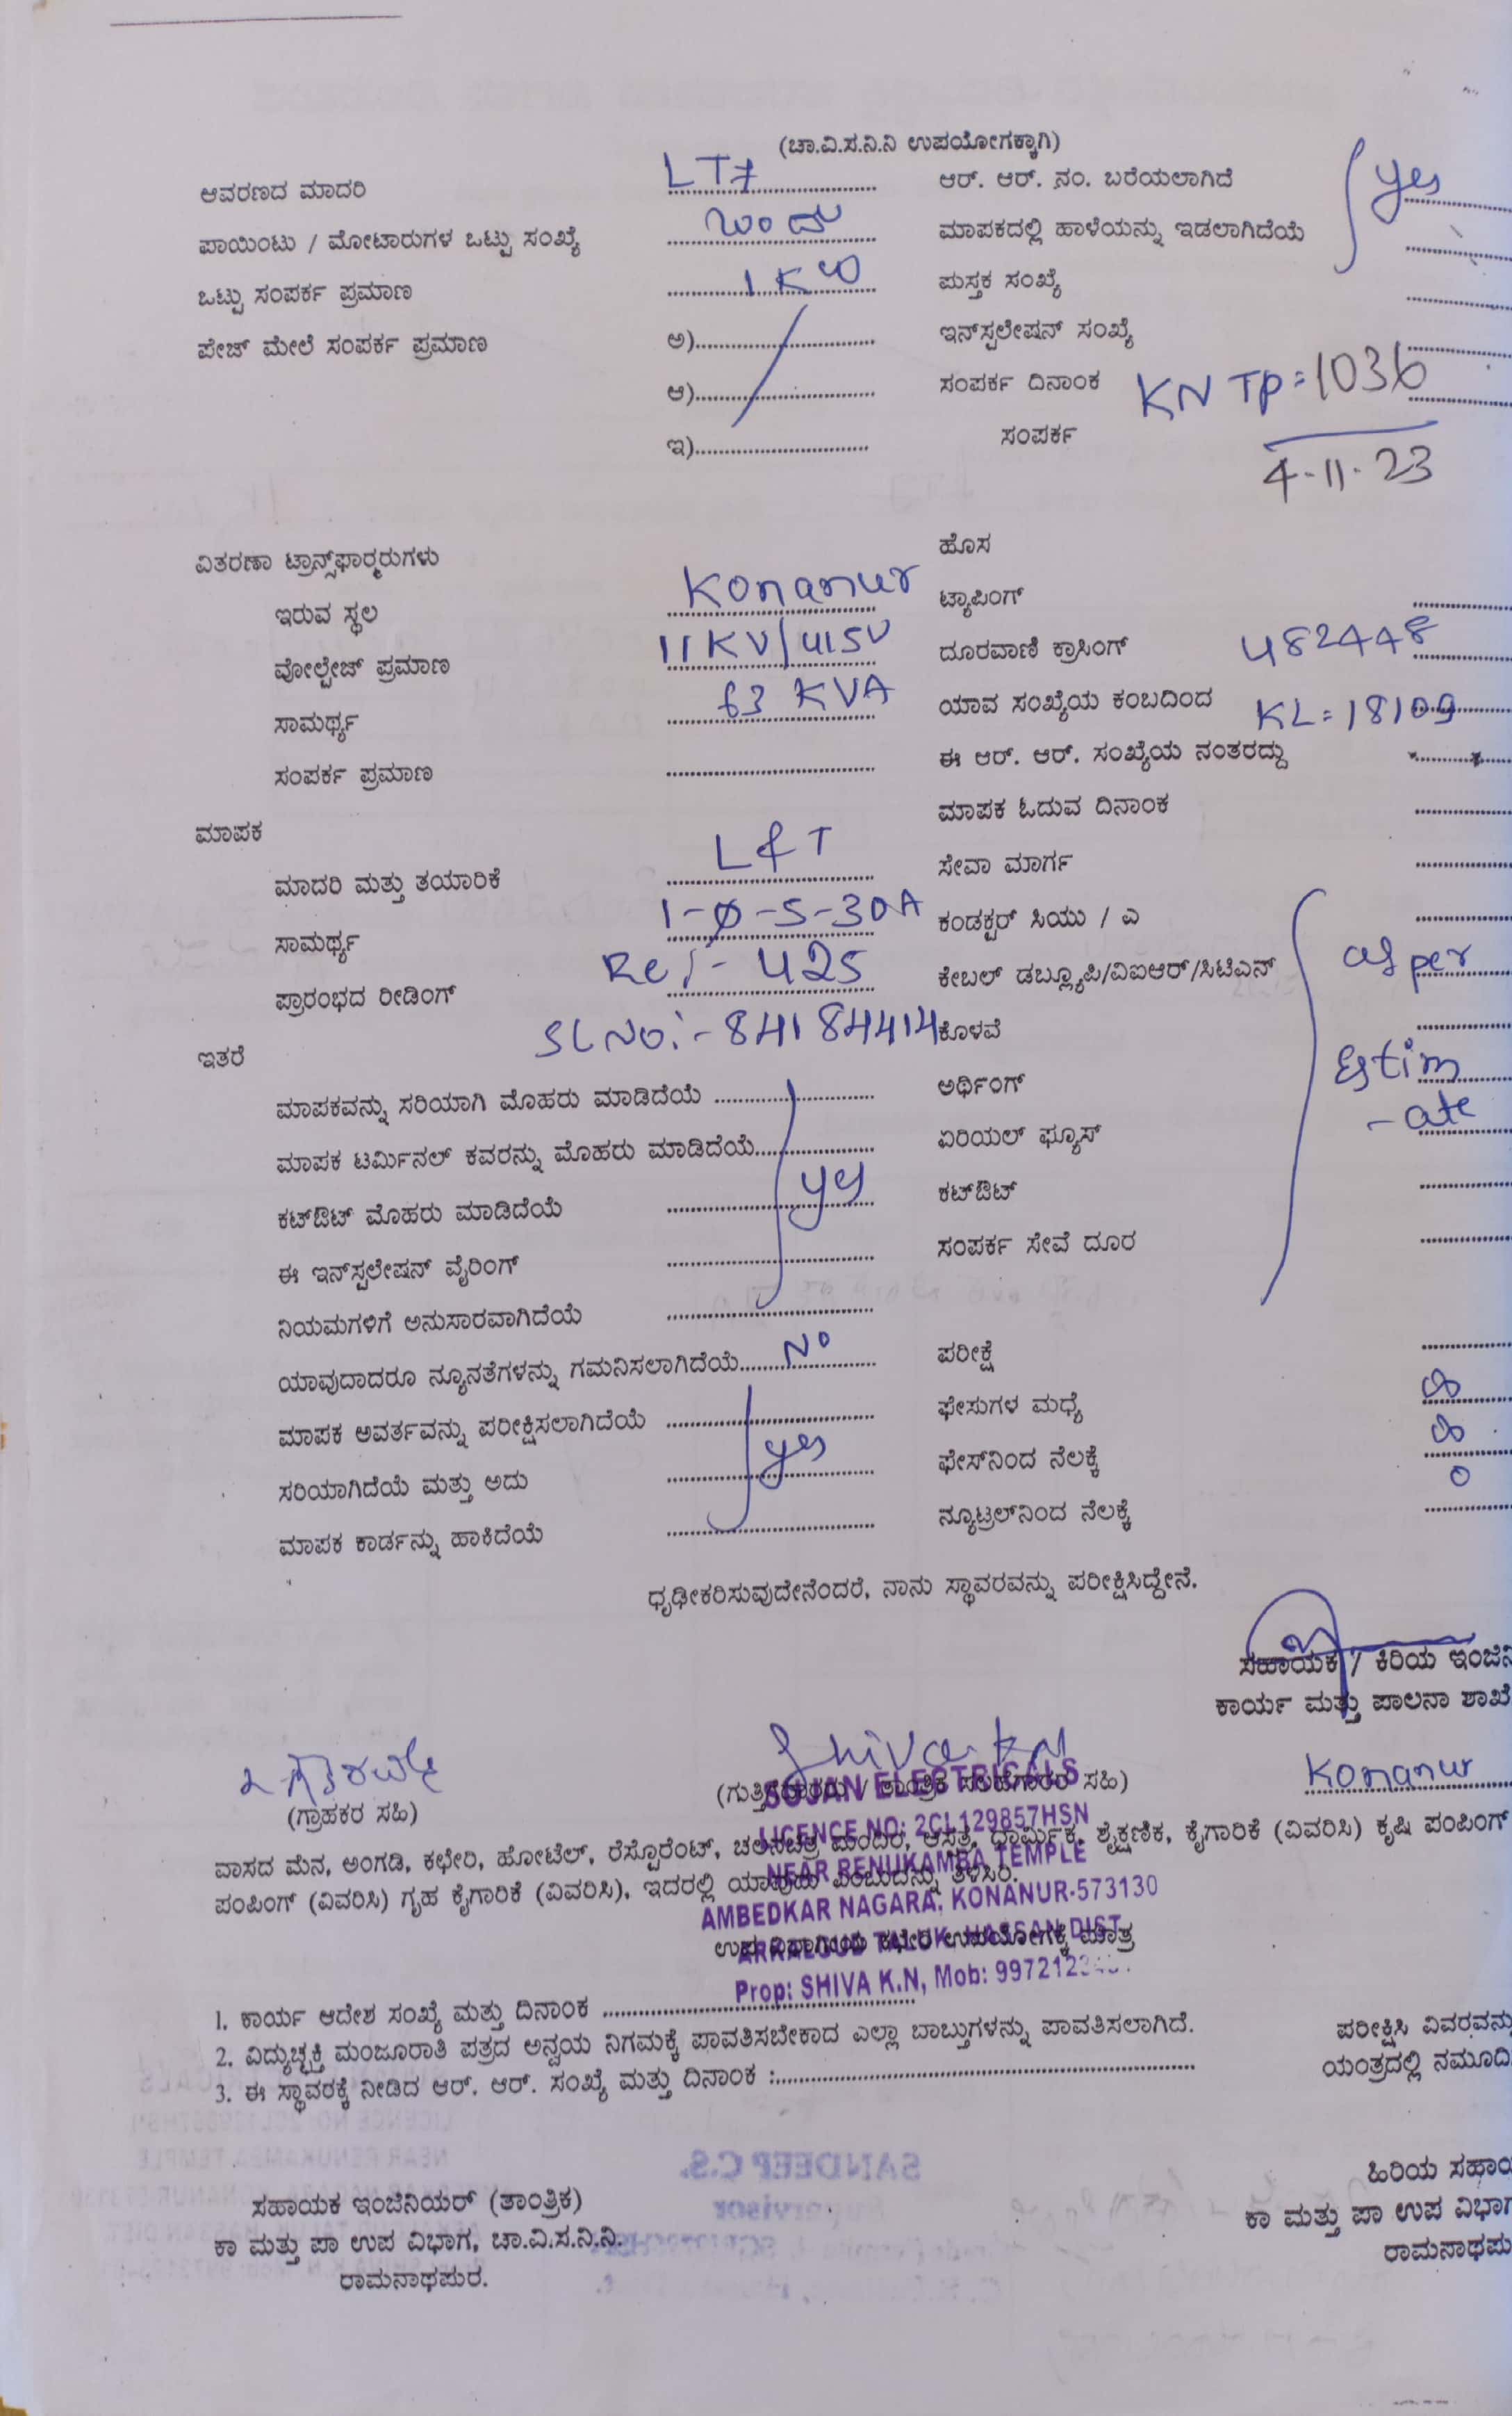 (ಚಾ.ವಿ.ಸ.ನಿ.ನಿ ಉಪಯೋಗಕ್ಕಾಗಿ)
ಆವರಣದ ಮಾದರಿ LT7 ಆರ್. ಆರ್. ನಂ. ಬರೆಯಲಾಗಿದೆ yes
ಪಾಯಿಂಟು / ಮೋಟಾರುಗಳ ಒಟ್ಟು ಸಂಖ್ಯೆ ಒಂದು ಮಾಪಕದಲ್ಲಿ ಹಾಳೆಯನ್ನು ಇಡಲಾಗಿದೆಯೆ
ಒಟ್ಟು ಸಂಪರ್ಕ ಪ್ರಮಾಣ 1 KW ಮಸ್ತಕ ಸಂಖ್ಯೆ
ಪೇಜ್ ಮೇಲೆ ಸಂಪರ್ಕ ಪ್ರಮಾಣ ಅ) ಇನ್‌ಸ್ಪಲೇಷನ್ ಸಂಖ್ಯೆ
ಆ) ಸಂಪರ್ಕ ದಿನಾಂಕ KN TP=1036
ಇ) ಸಂಪರ್ಕ 4-11-23
ವಿತರಣಾ ಟ್ರಾನ್ಸ್‌ಫಾರ್‍ಮರುಗಳು ಹೊಸ
ಇರುವ ಸ್ಥಲ Konanur ಟ್ಯಾಪಿಂಗ್
ವೋಲ್ಟೇಜ್ ಪ್ರಮಾಣ 11KV/415V ದೂರವಾಣಿ ಕ್ರಾಸಿಂಗ್ 482448
ಸಾಮರ್ಥ್ಯ 63 KVA ಯಾವ ಸಂಖ್ಯೆಯ ಕಂಬದಿಂದ KL=18109
ಸಂಪರ್ಕ ಪ್ರಮಾಣ ಈ ಆರ್. ಆರ್. ಸಂಖ್ಯೆಯ ನಂತರದ್ದು
ಮಾಪಕ ಮಾಪಕ ಓದುವ ದಿನಾಂಕ
ಮಾದರಿ ಮತ್ತು ತಯಾರಿಕೆ L&T ಸೇವಾ ಮಾರ್ಗ
ಸಾಮರ್ಥ್ಯ 1-Ø-5-30A ಕಂಡಕ್ಟರ್ ಸಿಯು / ಎ
ಪ್ರಾರಂಭದ ರೀಡಿಂಗ್ Re/- 425 ಕೇಬಲ್ ಡಬ್ಲ್ಯೂಪಿ/ವಿಐಆರ್/ಸಿಟಿಎನ್ as per
ಇತರೆ SLNO:- 84184414 ಕೊಳವೆ
ಮಾಪಕವನ್ನು ಸರಿಯಾಗಿ ಮೊಹರು ಮಾಡಿದೆಯೆ ಅರ್ಥಿಂಗ್ Estim
ಮಾಪಕ ಟರ್ಮಿನಲ್ ಕವರನ್ನು ಮೊಹರು ಮಾಡಿದೆಯೆ ಏರಿಯಲ್ ಫ್ಯೂಸ್ -ate
ಕಟ್‌ಔಟ್ ಮೊಹರು ಮಾಡಿದೆಯೆ yes ಕಟ್‌ಔಟ್
ಈ ಇನ್‌ಸ್ಪಲೇಷನ್ ವೈರಿಂಗ್ ಸಂಪರ್ಕ ಸೇವೆ ದೂರ
ನಿಯಮಗಳಿಗೆ ಅನುಸಾರವಾಗಿದೆಯೆ
ಯಾವುದಾದರೂ ನ್ಯೂನತೆಗಳನ್ನು ಗಮನಿಸಲಾಗಿದೆಯೆ No ಪರೀಕ್ಷೆ
ಮಾಪಕ ಅವರ್ತವನ್ನು ಪರೀಕ್ಷಿಸಲಾಗಿದೆಯೆ ಫೇಸುಗಳ ಮಧ್ಯೆ ∞
ಸರಿಯಾಗಿದೆಯೆ ಮತ್ತು ಅದು yes ಫೇಸ್‌ನಿಂದ ನೆಲಕ್ಕೆ ∞
ಮಾಪಕ ಕಾರ್ಡನ್ನು ಹಾಕಿದೆಯೆ ನ್ಯೂಟ್ರಲ್‌ನಿಂದ ನೆಲಕ್ಕೆ 0
ಧೃಢೀಕರಿಸುವುದೇನೆಂದರೆ, ನಾನು ಸ್ಥಾವರವನ್ನು ಪರೀಕ್ಷಿಸಿದ್ದೇನೆ.
ಸಹಾಯಕ / ಕಿರಿಯ ಇಂಜಿನಿ
ಕಾರ್ಯ ಮತ್ತು ಪಾಲನಾ ಶಾಖೆ
Shiva KN
(ಗ್ರಾಹಕರ ಸಹಿ) (ಗುತ್ತಿಗೆದಾರರು / ತಾಂತ್ರಿಕ ಸಲಹೆಗಾರರ ಸಹಿ) Konanur
SUJAN ELECTRICALS
LICENCE NO: 2CL129857HSN
ವಾಸದ ಮೆನ, ಅಂಗಡಿ, ಕಛೇರಿ, ಹೋಟೆಲ್, ರೆಸ್ಟೊರೆಂಟ್, ಚಲನಚಿತ್ರ ಮಂದಿರ, ಆಸ್ಪತ್ರೆ, ಧಾರ್ಮಿಕ, ಶೈಕ್ಷಣಿಕ, ಕೈಗಾರಿಕೆ (ವಿವರಿಸಿ) ಕೃಷಿ ಪಂಪಿಂಗ್
NEAR RENUKAMBA TEMPLE
ಪಂಪಿಂಗ್ (ವಿವರಿಸಿ) ಗೃಹ ಕೈಗಾರಿಕೆ (ವಿವರಿಸಿ), ಇದರಲ್ಲಿ ಯಾವುದು ಎಂಬುದನ್ನು ತಿಳಿಸಿರಿ.
AMBEDKAR NAGARA, KONANUR-573130
ಉಪ ವಿಭಾಗೀಯ ಕಛೇರಿ ಉಪಯೋಗಕ್ಕೆ ಮಾತ್ರ
ARKALGUD TALUK, HASSAN DIST
Prop: SHIVA K.N, Mob: 9972123
1. ಕಾರ್ಯ ಆದೇಶ ಸಂಖ್ಯೆ ಮತ್ತು ದಿನಾಂಕ
2. ವಿದ್ಯುಚ್ಛಕ್ತಿ ಮಂಜೂರಾತಿ ಪತ್ರದ ಅನ್ವಯ ನಿಗಮಕ್ಕೆ ಪಾವತಿಸಬೇಕಾದ ಎಲ್ಲಾ ಬಾಬ್ತುಗಳನ್ನು ಪಾವತಿಸಲಾಗಿದೆ. ಪರೀಕ್ಷಿಸಿ ವಿವರವನ್ನು
3. ಈ ಸ್ಥಾವರಕ್ಕೆ ನೀಡಿದ ಆರ್. ಆರ್. ಸಂಖ್ಯೆ ಮತ್ತು ದಿನಾಂಕ : ಯಂತ್ರದಲ್ಲಿ ನಮೂದಿ
ಹಿರಿಯ ಸಹಾಯ
ಸಹಾಯಕ ಇಂಜಿನಿಯರ್ (ತಾಂತ್ರಿಕ) ಕಾ ಮತ್ತು ಪಾ ಉಪ ವಿಭಾಗ
ಕಾ ಮತ್ತು ಪಾ ಉಪ ವಿಭಾಗ, ಚಾ.ವಿ.ಸ.ನಿ.ನಿ. ರಾಮನಾಥಪು
ರಾಮನಾಥಪುರ.